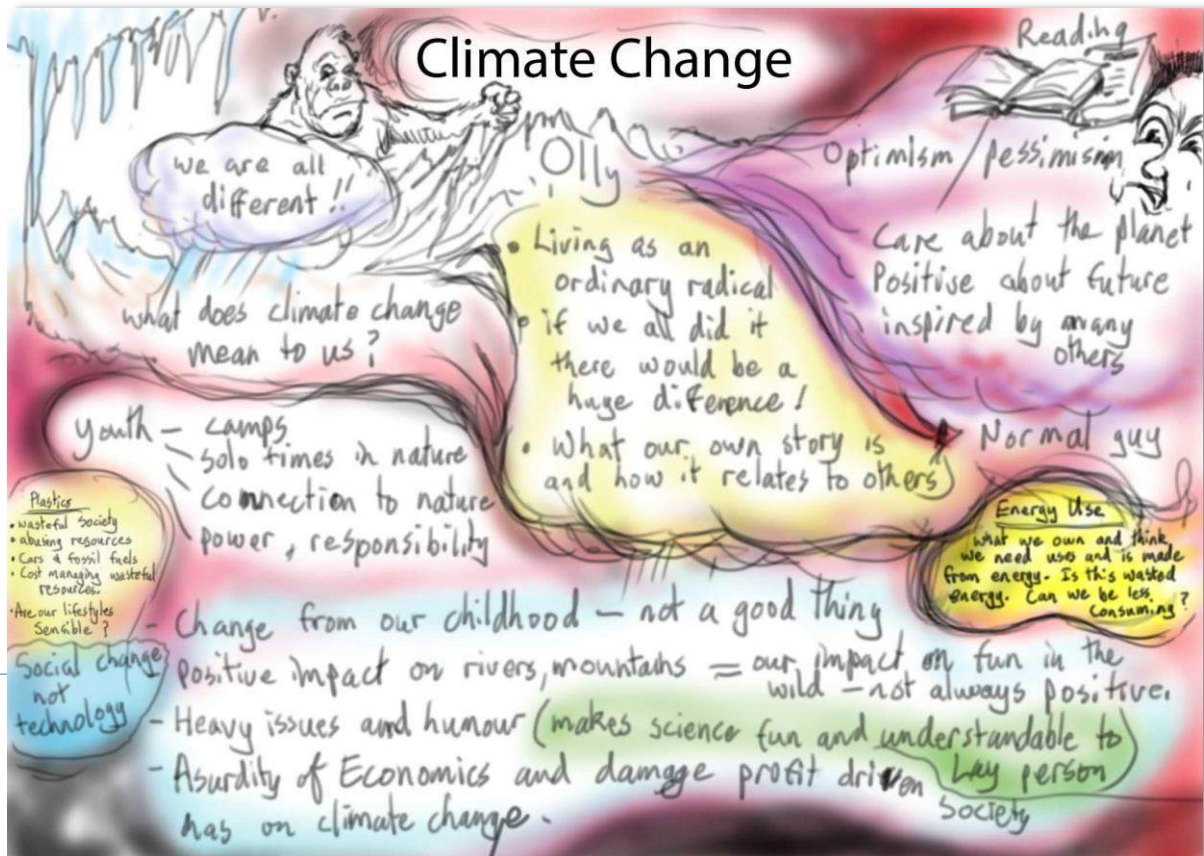 Climate Change
Reading
we are all
different!!
Olly
Optimism / pessimism
Care about the planet
Positive about future
inspired by many
others
• Living as an
ordinary radical
• if we all did it
there would be a
huge difference!
• What our own story is
and how it relates to others
Normal guy
what does climate change
mean to us?
Youth – camps
solo times in nature
connection to nature
power, responsibility
Plastics
• wasteful society
• abusing resources
• Cars & fossil fuels
• Cost managing wasteful
resources.
• Are our lifestyles
Sensible?
Energy Use
what we own and think
we need uses and is made
from energy. Is this wasted
energy. Can we be less
Consuming?
Social change
not
technology
- Change from our childhood – not a good thing
Positive impact on rivers, mountains = our impact on fun in the
wild – not always positive.
- Heavy issues and humour (makes science fun and understandable to
Lay person)
- Asurdity of Economics and damage profit driven
society
has on climate change.